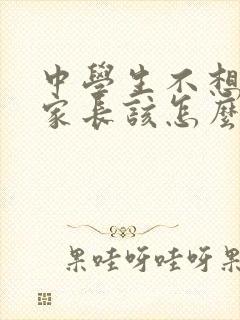 中學生不想
家長該怎麼
果哇呀哇呀果